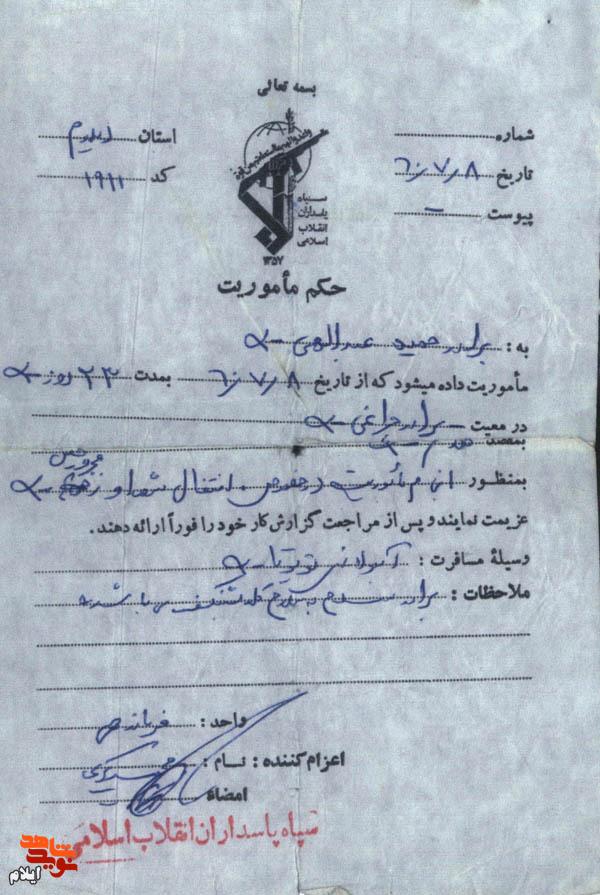 بسمه تعالی
شماره
استان ایلام
تاریخ ۶۰/۷/۸
کد ۱۹۱۱
پیوست –
سپاه
پاسداران
انقلاب
اسلامی
۱۳۵۷
حکم مأموریت
به : برادر حمید عبدالهی
مأموریت داده میشود که از تاریخ ۶۰/۷/۸ بمدت ۲۳ روز
در معیت برادر چراغی
بمقصد
مجروحین
بمنظور انجام مأموریت در خصوص انتقال شهدا و
عزیمت نمایند و پس از مراجعت گزارش کار خود را فوراً ارائه دهند.
وسیلهٔ مسافرت : آمبولانس تویوتا
ملاحظات : برادر مسلح به می باشد
واحد : فرماندهی
اعزام کننده : نام :
امضاء
سپاه پاسداران انقلاب اسلامی
نوید شاهد
ایلام